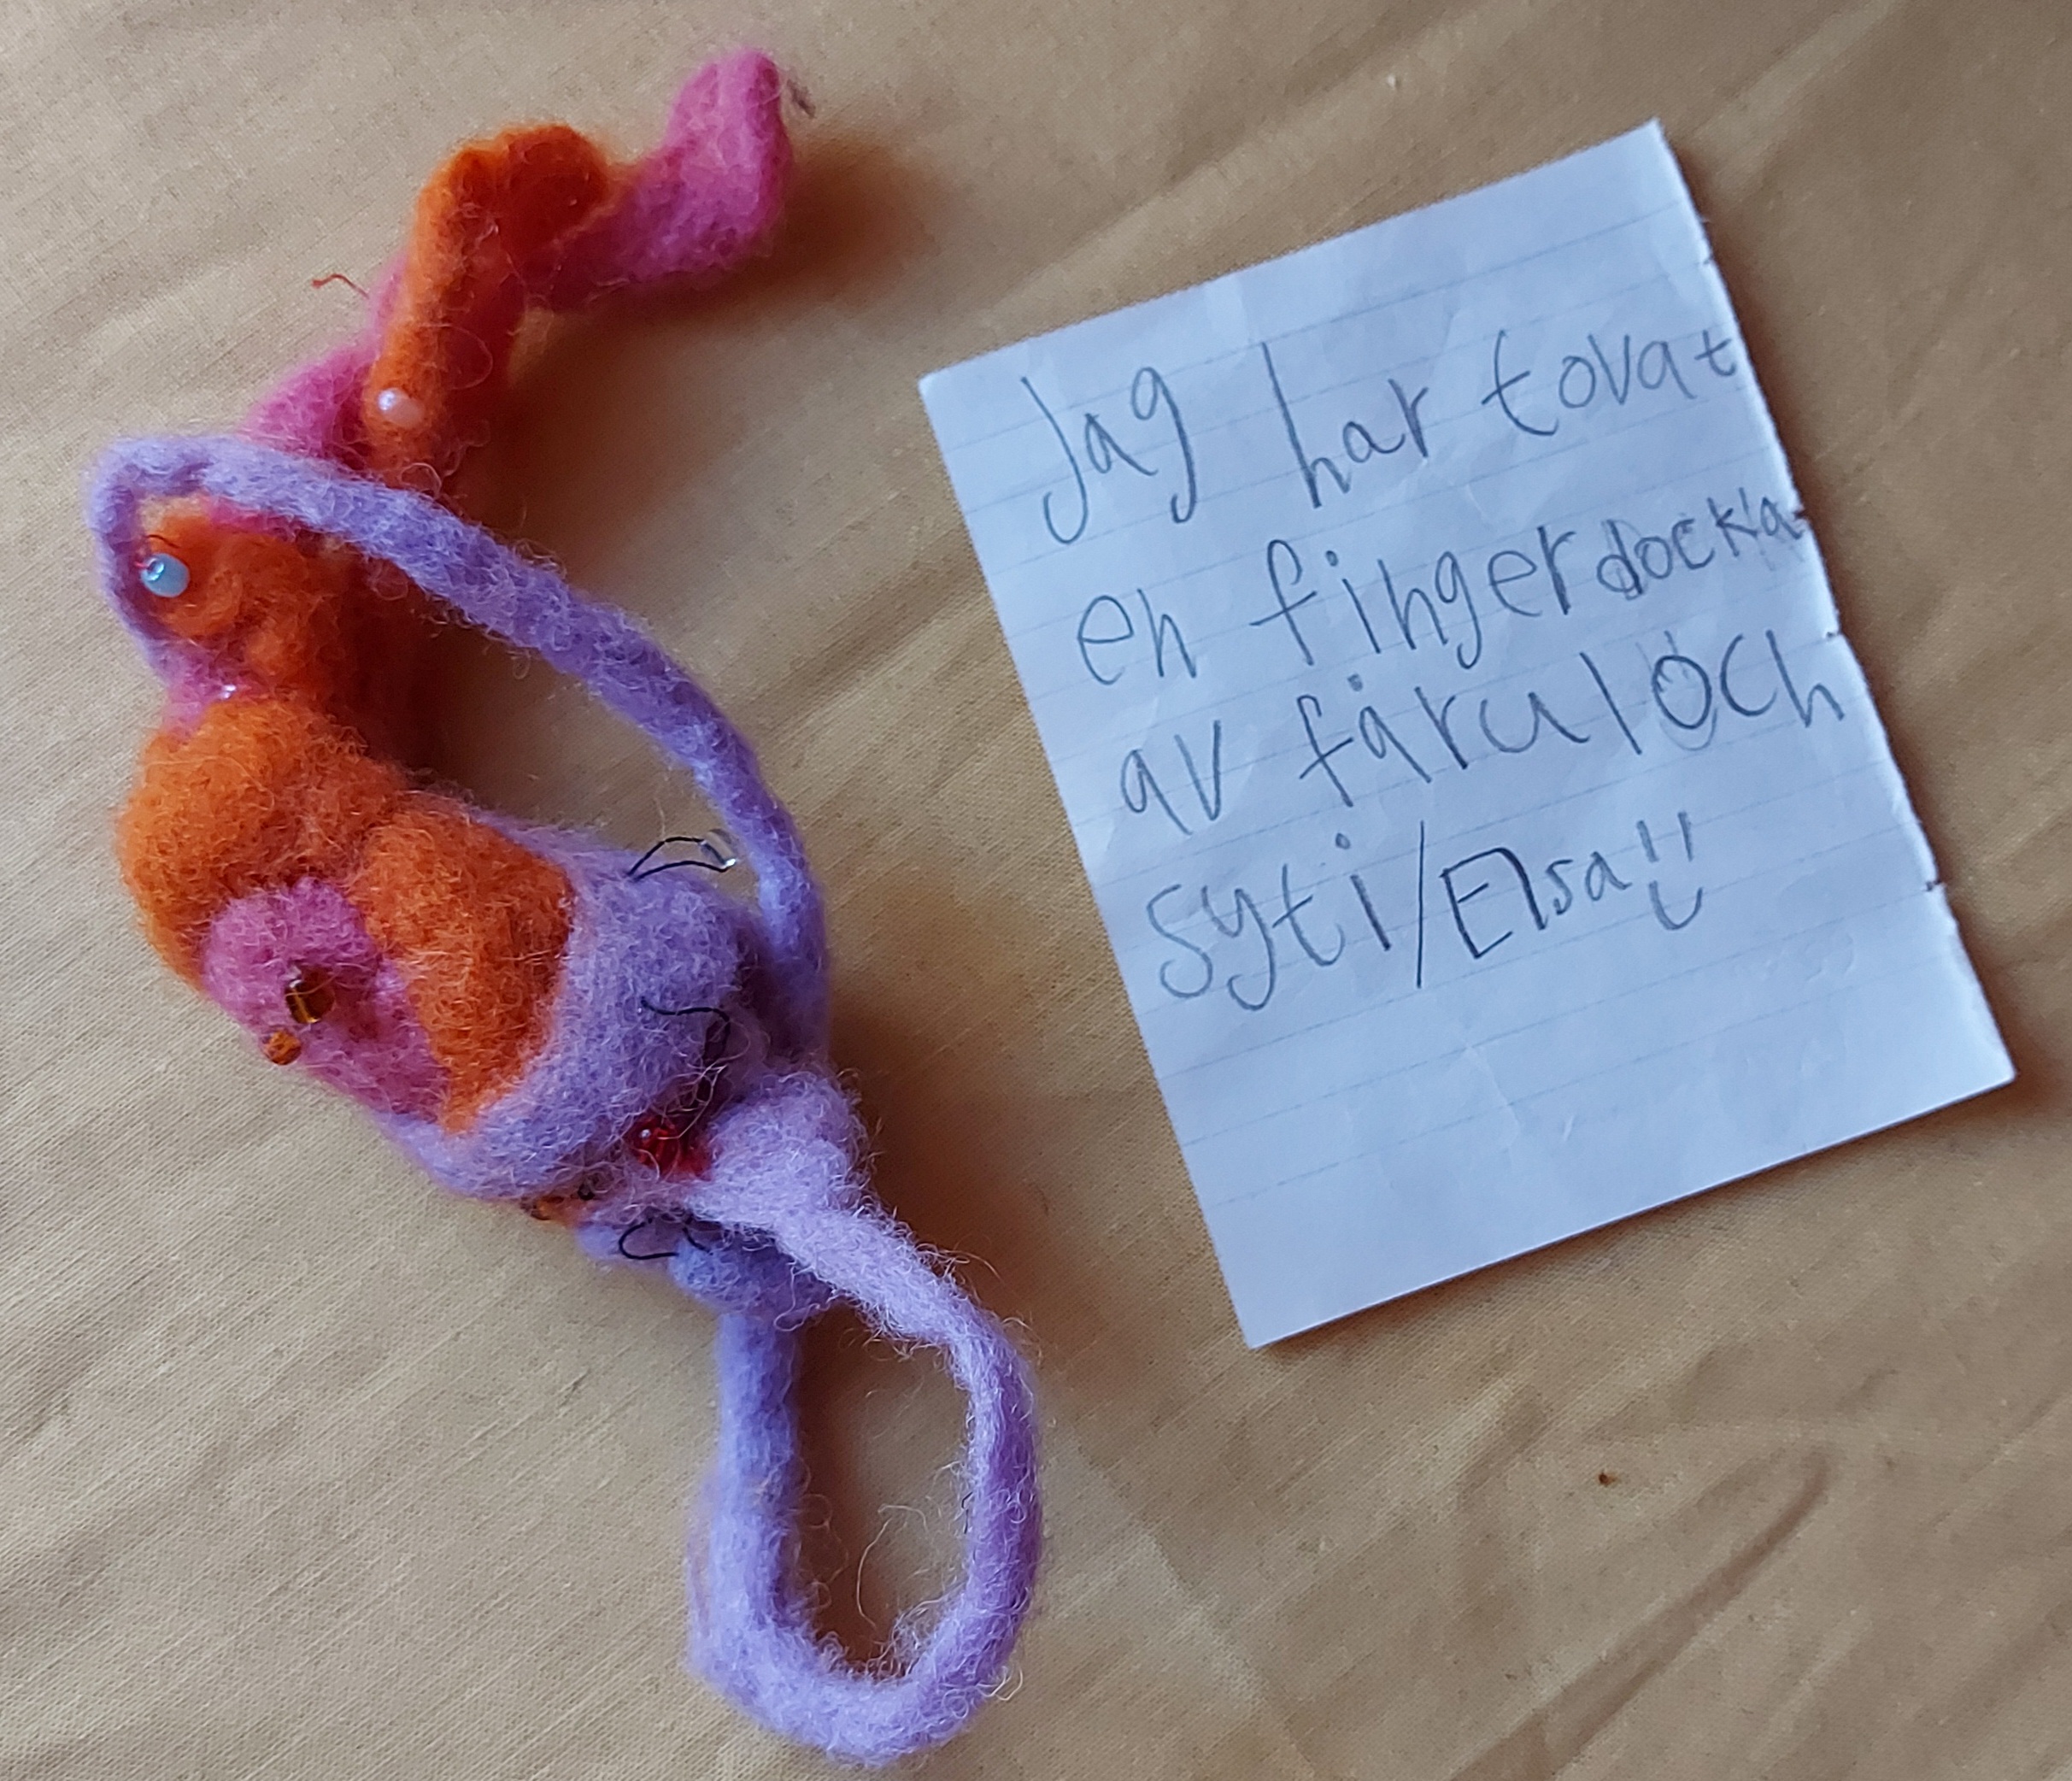 Jag har tovat
en fingerdocka
av fårull och
syti/Elsa